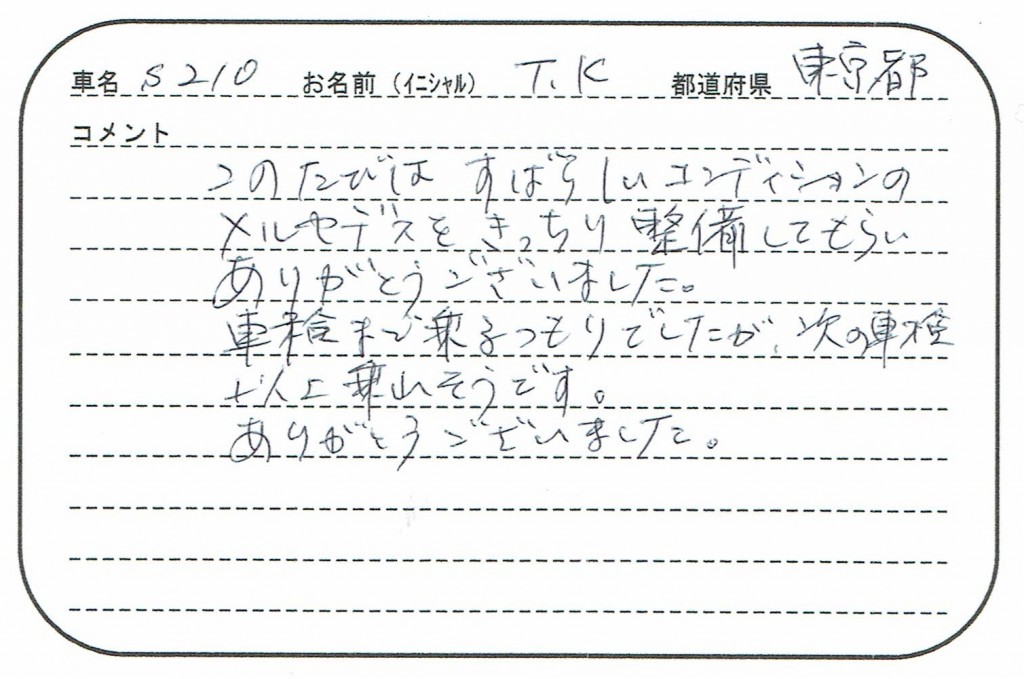 車名 S210 お名前(イニシャル) T.K 都道府県 東京都
コメント
このたびは すばらしいコンディションの
メルセデスを きっちり 整備してもらい
ありがとうございました。
車検まで乗るつもりでしたが、次の車検
以上乗れそうです。
ありがとうございました。